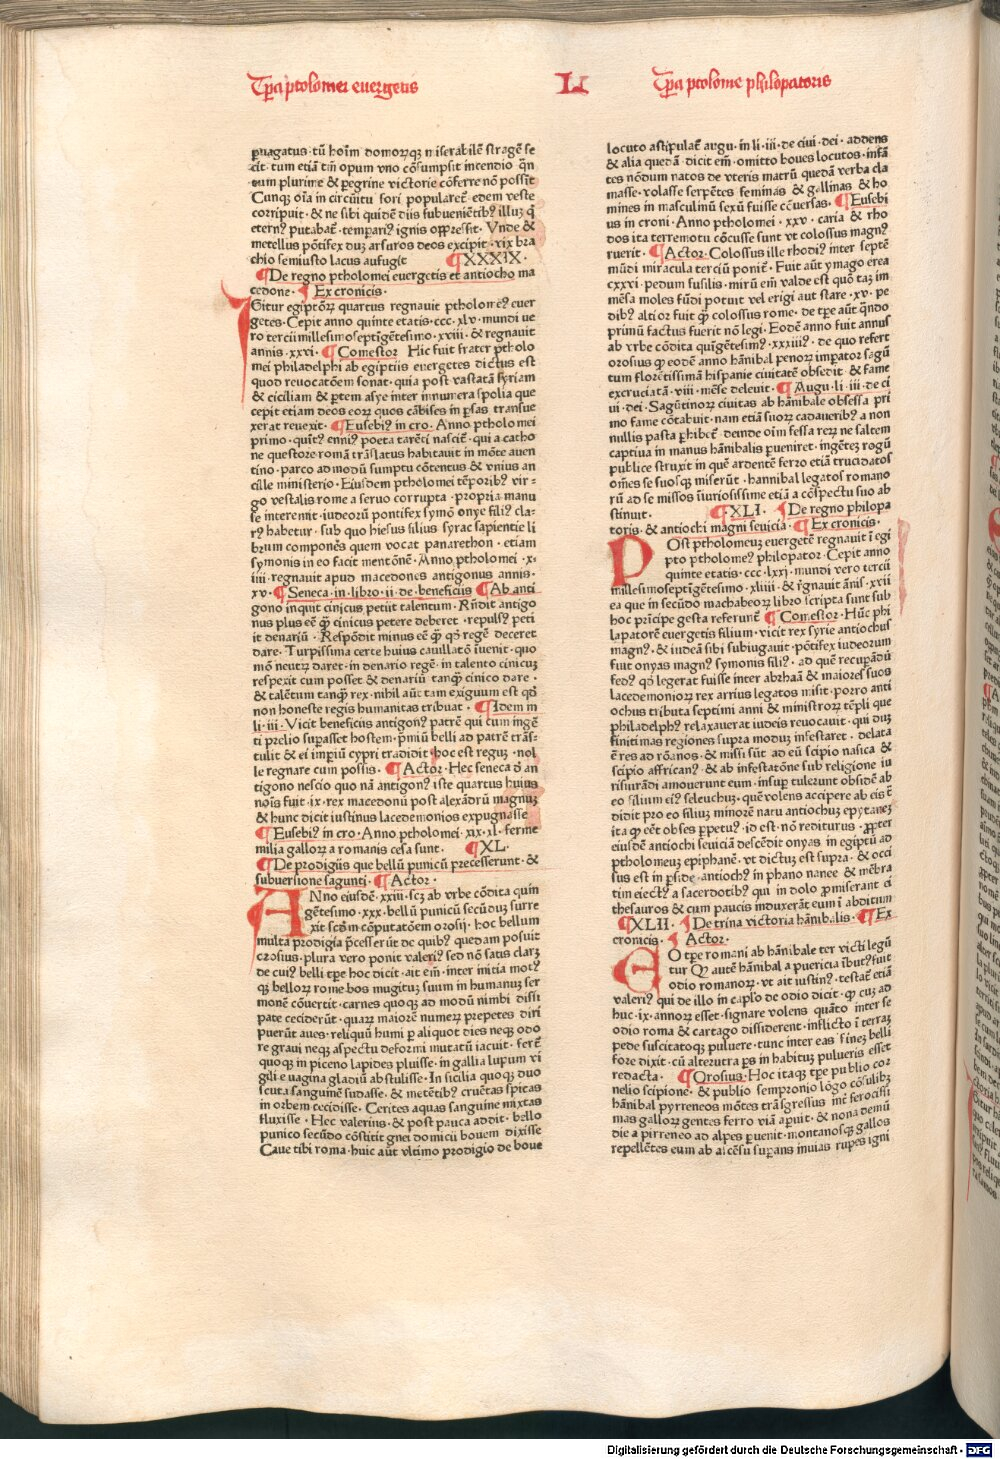 Tꝑa ptolomei euergetis
L
Tꝑa ptolome philopatoris
ꝑuagatus · tū hoīm domoꝝqꝫ miserabilē stragē fe
cit · tum etiā tm̄ opum vno cōsumpsit incendio q̄n
tum plurime & ꝑegrine victorie cōferre nō possīt
Cunqꝫ oīa in circūitu fori popularet᷑ · edem veste
corripuit · & ne sibi quidē diis subueniētibꝰ illuꝫ q̄
eternꝰ putabat᷑ · temparīꝰ ignis oppressit · Vnde &
metellus pōtifex duꝫ arsuros deos excipit · vix bra
chio semiusto lacus aufugit ¶XXXIX ·
¶De regno ptholomei euergetis et antiocho ma
cedone · ¶ Ex cronicis ·
IGitur egiptōꝝ quartus regnauit ptholomeꝰ euer
getes · Cepit anno quinte etatis · ccc · xlv · mundi ue
ro tercii millesimo septīgētesimo · xviii · & regnauit
annis · xxvi · ¶ Comestor Hic fuit frater ptholo
mei philadelphi ab egiptiis euergetes dictus est
quod reuocatōem sonat · quia post vastatā syriam
& ciciliam & ꝑtem asye inter innumera spolia que
cepit etiam deos eoꝝ quos cābises in ꝑsas transue
xerat reuexit · ¶Eusebiꝰ in cro · Anno ptholomei
primo · quītꝰ enniꝰ poeta tarēti nascit᷑ · qui a catho
ne questore romā trāslatus habitauit in mōte auen
tino · parco admodū sumptu cōtentus & vnius an
cille ministerio · Eiusdem ptholomei tēporibꝰ vir ⸗
go vestalis rome a seruo corrupta · propria manu
se interemit · iudeorū pontifex symō onye filiꝰ cla⸗
rꝰ habetur · sub quo hiesus filius syrac sapientie li
brum componēs quem vocat panarethon · etiam
symonis in eo facit mentōnē · Anno ptholomei · x·
iiii · regnauit apud macedones antigonus annis ·
xv · ¶Seneca · in · libro · ii · de · beneficiis ¶Ab anti
gono inquit cinicus petiit talentum · Rn̄dit antigo
nus plus eē ꝙ cinicus petere deberet · repulsꝰ peti
it denariū · Respōdit minus eē ꝙ qꝫ regē deceret
dare · Turpissima certe huius cauillatō īuenit · quo
mō neutꝝ daret · in denario regē · in talento cinicuꝫ
respexit cum posset & denariū tanqꝫ cinico dare ·
& talētum tanqꝫ rex · nihil aūt tam exiguum est qđ
non honeste regis humanitas tribuat · ¶Idem in
li · iii · Vicit beneficiis antigonꝰ patrē qui cum ingē
ti prelio suꝑasset hostem · p̄miū belli ad patrē trās⸗
tulit & ei impiū cypri tradidit · hoc est regnuꝫ · nol
le regnare cum possis · ¶Actor · Hec seneca · đ an
tigono nescio quo nā antigonꝰ iste quartus huius
noīs fuit · ix · rex macedonū post alexādrū magnuꝫ
& hunc dicit iustinus lacedemonios expugnasse
¶Eusebiꝰ in cro · Anno ptholomei · xix · xl · ferme
milia galloꝝ a romanis cesa sunt · ¶XL ·
¶De prodigiis que bellū punicū precesserunt · &
subuersione sagunti · ¶Actor ·
ANno eiusdē · xxiii · scꝫ ab vrbe cōdita quin
gētesimo · xxx · bellū punicū secūduꝫ surre
xit scđm cōputatōem orosij · hoc bellum
multa prodigia p̄cesserūt de quibꝰ quedam posuit
orosius · plura vero ponit valeriꝰ sed nō satis claꝝ
de cuiꝰ belli tꝑe hoc dicit · ait em̄ · inter initia motꝰ
qꝫ belloꝝ rome bos mugituꝫ suum in humanuꝫ ser
monē cōuertit · carnes quoqꝫ ad modū nimbi dissi
pate ceciderūt · quaꝝ maiorē numeꝝ prepetes diri
puerūt aues · reliquū humi ꝑ aliquot dies neqꝫ odo
re graui neqꝫ aspectu deformi mutatū iacuit · ferē
quoqꝫ in piceno lapides pluisse · in gallia lupum vi
gili e uagina gladiū abstulisse · In sicilia quoqꝫ duo
scuta sanguinē sudasse · & metētibꝰ cruētas spicas
in orbem cecidisse · Cerites aquas sanguine mixtas
fluxisse · Hec valerius · & post pauca addit · bello
punico secūdo cōstitit gnei domicii bouem dixisse
Caue tibi roma · huic aūt vltimo prodigio de boue
locuto astipulat᷑ augu · in li · iii · de ciui · dei · addens
& alia quedā · dicit em̄ · omitto boues locutos · infā
tes nōdum natos de vteris matrū quedā verba cla
masse · volasse serpētes · feminas & gallinas & ho
mines in masculinū sexū fuisse cōuersas · ¶Eusebi
us in croni · Anno ptholomei · xxv · caria & rho
dos ita terremotu cōcusse sunt vt colossus magnꝰ
ruerit · ¶Actor · Colossus ille rhodiꝰ inter septē
mūdi miracula terciū ponit᷑ · Fuit aūt ymago erea
cxxvi · pedum fusilis · mirū em̄ valde est quō taꝫ im
mēsa moles fūdi potuit vel erigi aut stare · xv · pe
dibꝰ altior fuit ꝙ colossus rome · de tꝑe aūt qn̄do
primū factus fuerit nō legi · Eodē anno fuit annus
ab vrbe cōdita quīgētesimꝰ · xxxiiiꝰ · de quo refert
orosius ꝙ eodē anno hānibal penoꝝ imꝑator sagū
tum florētissimā hispanie ciuitatē obsedit & fame
excruciatā · viii · mēse deleuit · ¶Augu · li · iii · de ci
ui · dei · Sagūtinoꝝ ciuitas ab hānibale obsessa pri
mo fame cōtabuit · nam etiā suoꝝ cadaueribꝰ a non
nullis pasta ꝑhibet᷑ · deinde oīm fessa reꝝ ne saltem
captiua in manus hānibalis ꝑueniret · ingētez rogū
publice struxit in quē ardentē ferro etiā trucidatos
oēs se suosqꝫ miserūt · hannibal legatos romano
rū ad se missos īiuriosissime etiā a cōspectu suo ab
stinuit · ¶XLI · ¶De regno philopa
toris · & antiochi magni seuicia · ¶Ex cronicis ·
POst ptholomeuꝫ euergetē regnauit ī egi
pto ptholomeꝰ philopator · Cepit anno
quinte etatis · ccc · lxxj · mundi vero tercii
millesimoseptīgētesimo · xliiii · & r̄gnauit ānis · xvii
ea que in secūdo machabeoꝝ libro scripta sunt sub
hoc prīcipe gesta referunt᷑ ¶Comestor · Hūc phi
lapatorē euergetis filium · vicit rex syrie antiochus
magnꝰ · & iudeā sibi subiugauit · pōtifex iudeorum
fuit onyas magnꝰ symonis filiꝰ · ad quē recuꝑādū
fedꝰ qđ legerat fuisse inter abrhaā & maiores suos
lacedemonioꝝ rex arrius legatos misit · porro anti
ochus tributa septimi anni & ministroꝝ tēpli que
philadelphꝰ relaxauerat iudeis reuocauit · qui duꝫ
finitimas regiones supra moduꝫ infestaret · delata
ē res ad rōanos · & missi sūt ad eū scipio nasica &
scipio affricanꝰ · & ab infestatōne sub religione iu
risiurādi amouerunt eum · insuꝑ tulerunt obsidē ab
eo filium eiꝰ seleuchuꝫ · quē volens accipere ab eis t᷑
didit pro eo filiuꝫ minorē natu antiochuꝫ epytaneꝫ
ita ꝙ eēt obses ꝑpetuꝰ · id est · nō rediturus · ꝓpter
eiusdē antiochi seuiciā descēdit onyas · in egiptū ad
ptholomeuꝫ epiphanē · vt dictuꝫ est supra · & occi
sus est in ꝑside · antiochꝰ in phano nanee & mēbra
tim eiectꝰ a sacerdotibꝰ qui in dolo ꝓmiserant ei
thesauros & cum paucis induxerāt eum ī abditum
¶XLII · ¶De trina victoria hānibalis · ¶Ex
cronicis · ¶ Actor ·
EO tꝑe romani ab hānibale ter victi legū
tur Qꝫ autē hānibal a puericia ībutꝰ fuit
odio romanoꝝ · vt ait iustinꝰ · testat᷑ etiā
valeriꝰ qui de illo in capl̄o de odio dicit · ꝙ cuꝫ ad
huc · ix · annoꝝ esset · signare volens quāto inter se
odio roma & cartago dissiderent · inflicto ī terraꝫ
pede suscitatoqꝫ puluere · tunc inter eas finez belli
fore dixit · cū alterutra ꝑs in habituꝫ pulueris esset
redacta · ¶Orosius · Hoc itaqꝫ tꝑe publio cor
nelio scipione · & publio sempronio lōgo cōsulibꝫ
hānibal pyrreneos mōtes trāsgressus int᷑ ferocissi
mas galloꝝ gentes ferro viā aꝑuit · & nona demū
die a pirreneo ad alpes ꝑuenit · montanosqꝫ gallos
repellētes eum ab ascēsu suꝑans inuias rupes igni
Digitalisierung gefördert durch die Deutsche Forschungsgemeinschaft · DFG